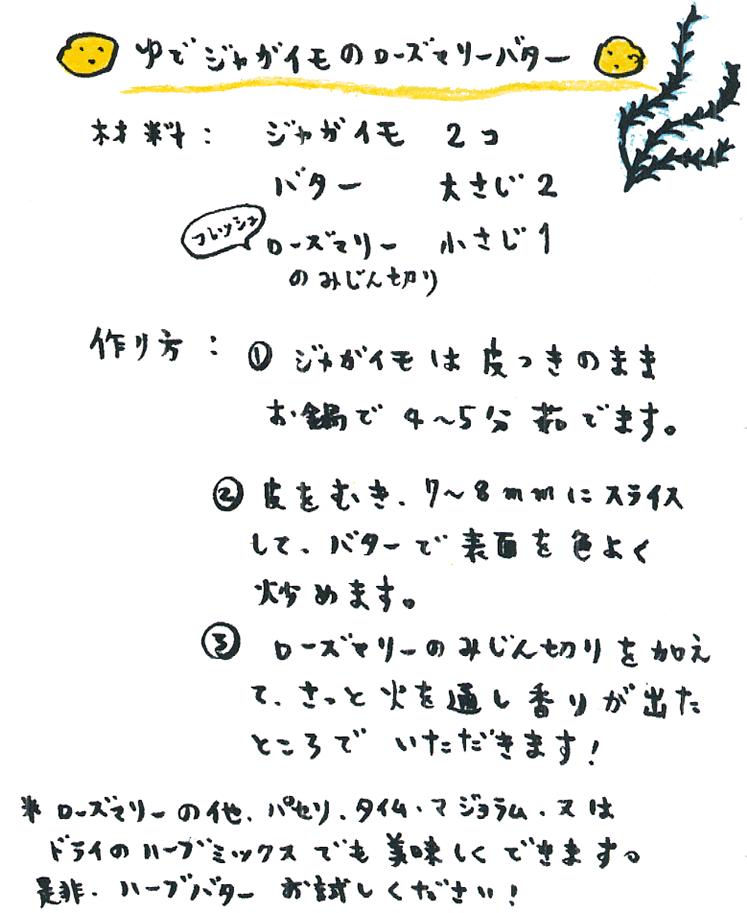 ゆでジャガイモのローズマリーバター
材料： ジャガイモ 2コ
バター 大さじ2
フレッシュ ローズマリー 小さじ1
のみじん切り
作り方： ① ジャガイモは皮つきのまま
お鍋で4～5分茹でます。
② 皮をむき、7～8mmにスライス
して、バターで表面を色よく
炒めます。
③ ローズマリーのみじん切りを加え
て、さっと火を通し香りが出た
ところで いただきます！
＊ローズマリーの他、パセリ、タイム・マジョラム・又は
ドライのハーブミックスでも美味しくできます。
是非・ハーブバターお試しください！